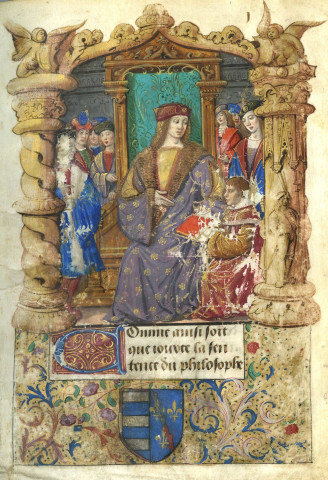 Comme ainsi soit
que toute la sen
tence du philosophe